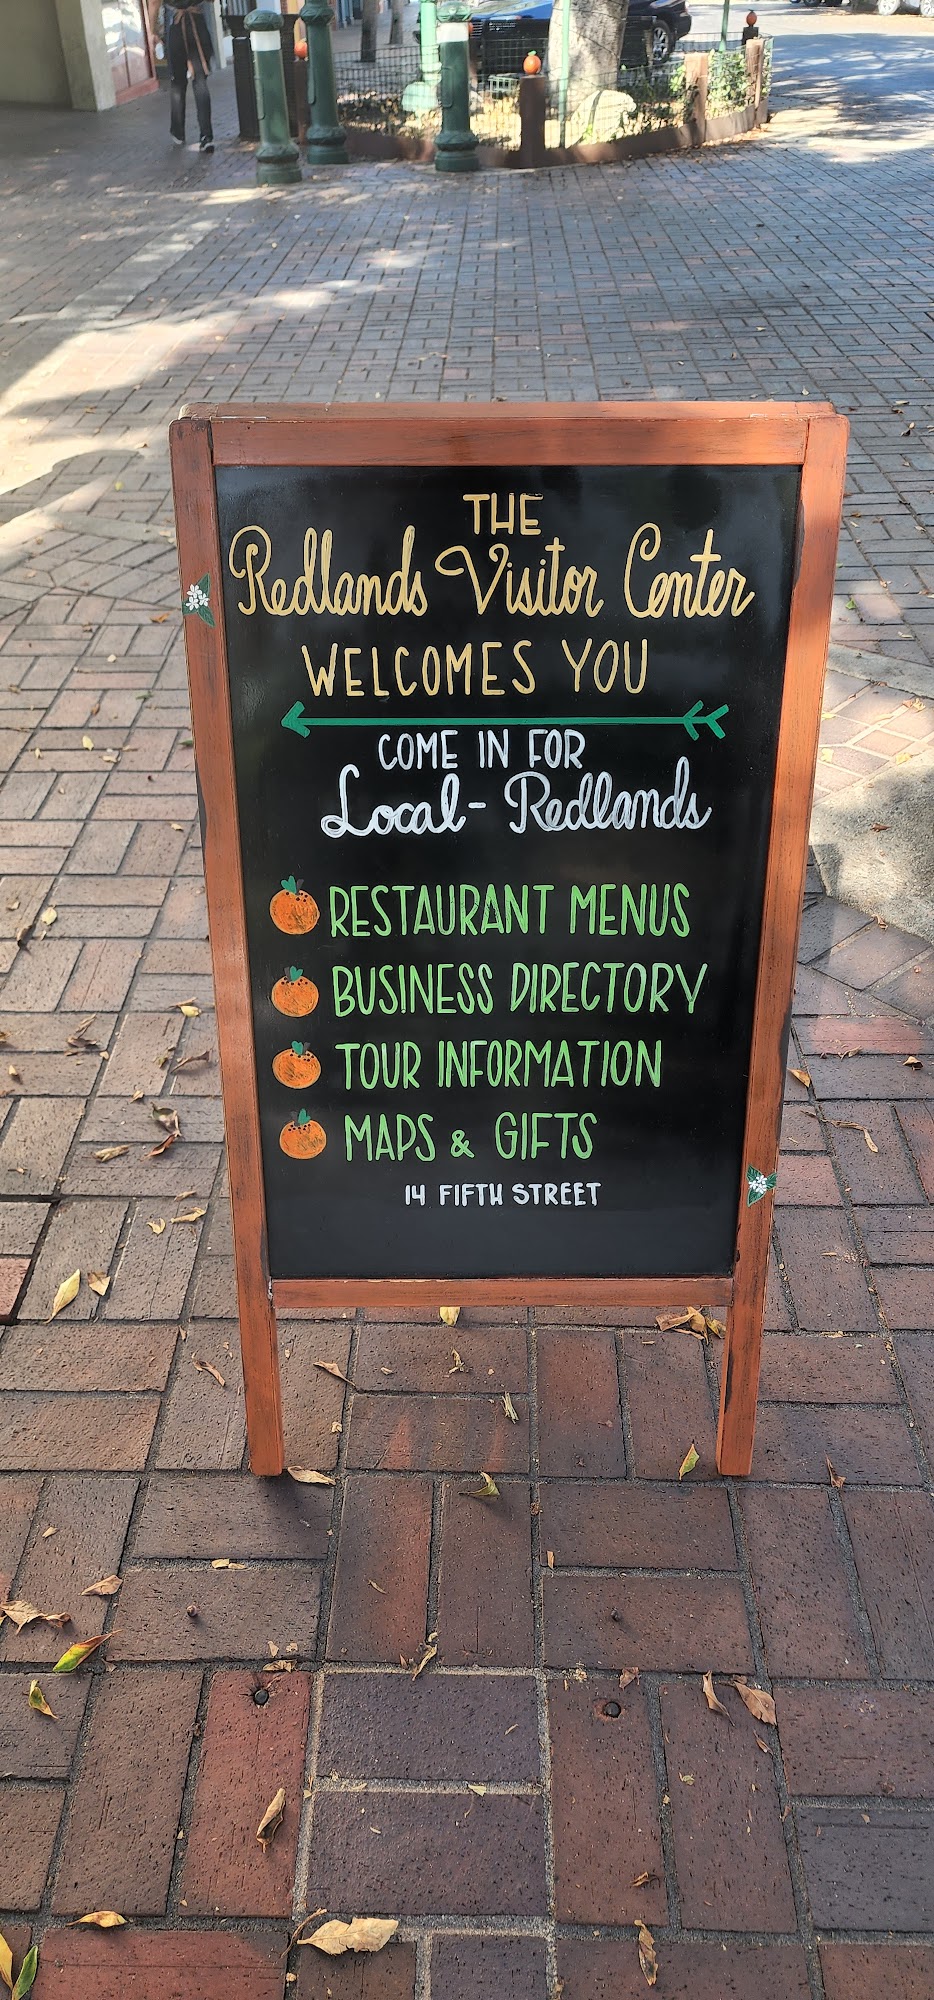 THE
Redlands Visitor Center
WELCOMES YOU
COME IN FOR
Local - Redlands
RESTAURANT MENUS
BUSINESS DIRECTORY
TOUR INFORMATION
MAPS & GIFTS
14 FIFTH STREET